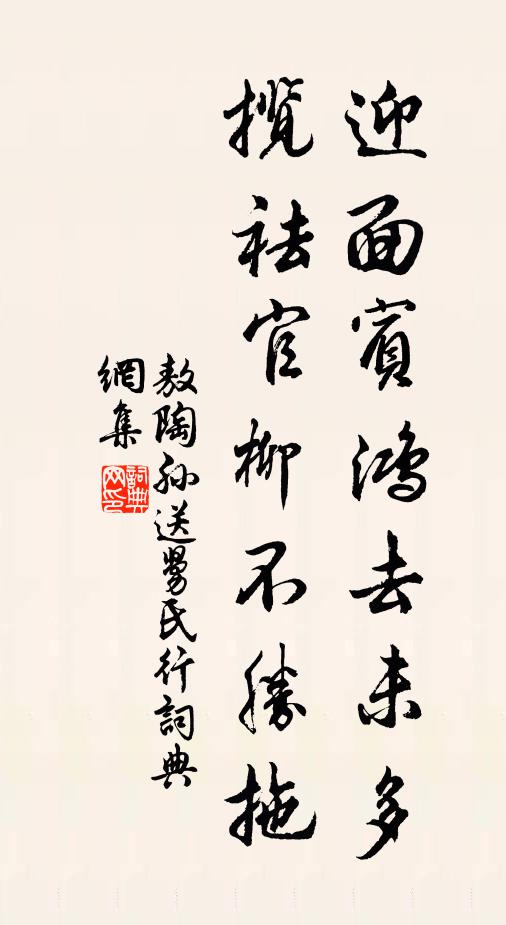 迎面賓鴻去未多
攬袪官柳不勝拖
敖陶孫送曼氏行詞典
網集
詞典網印